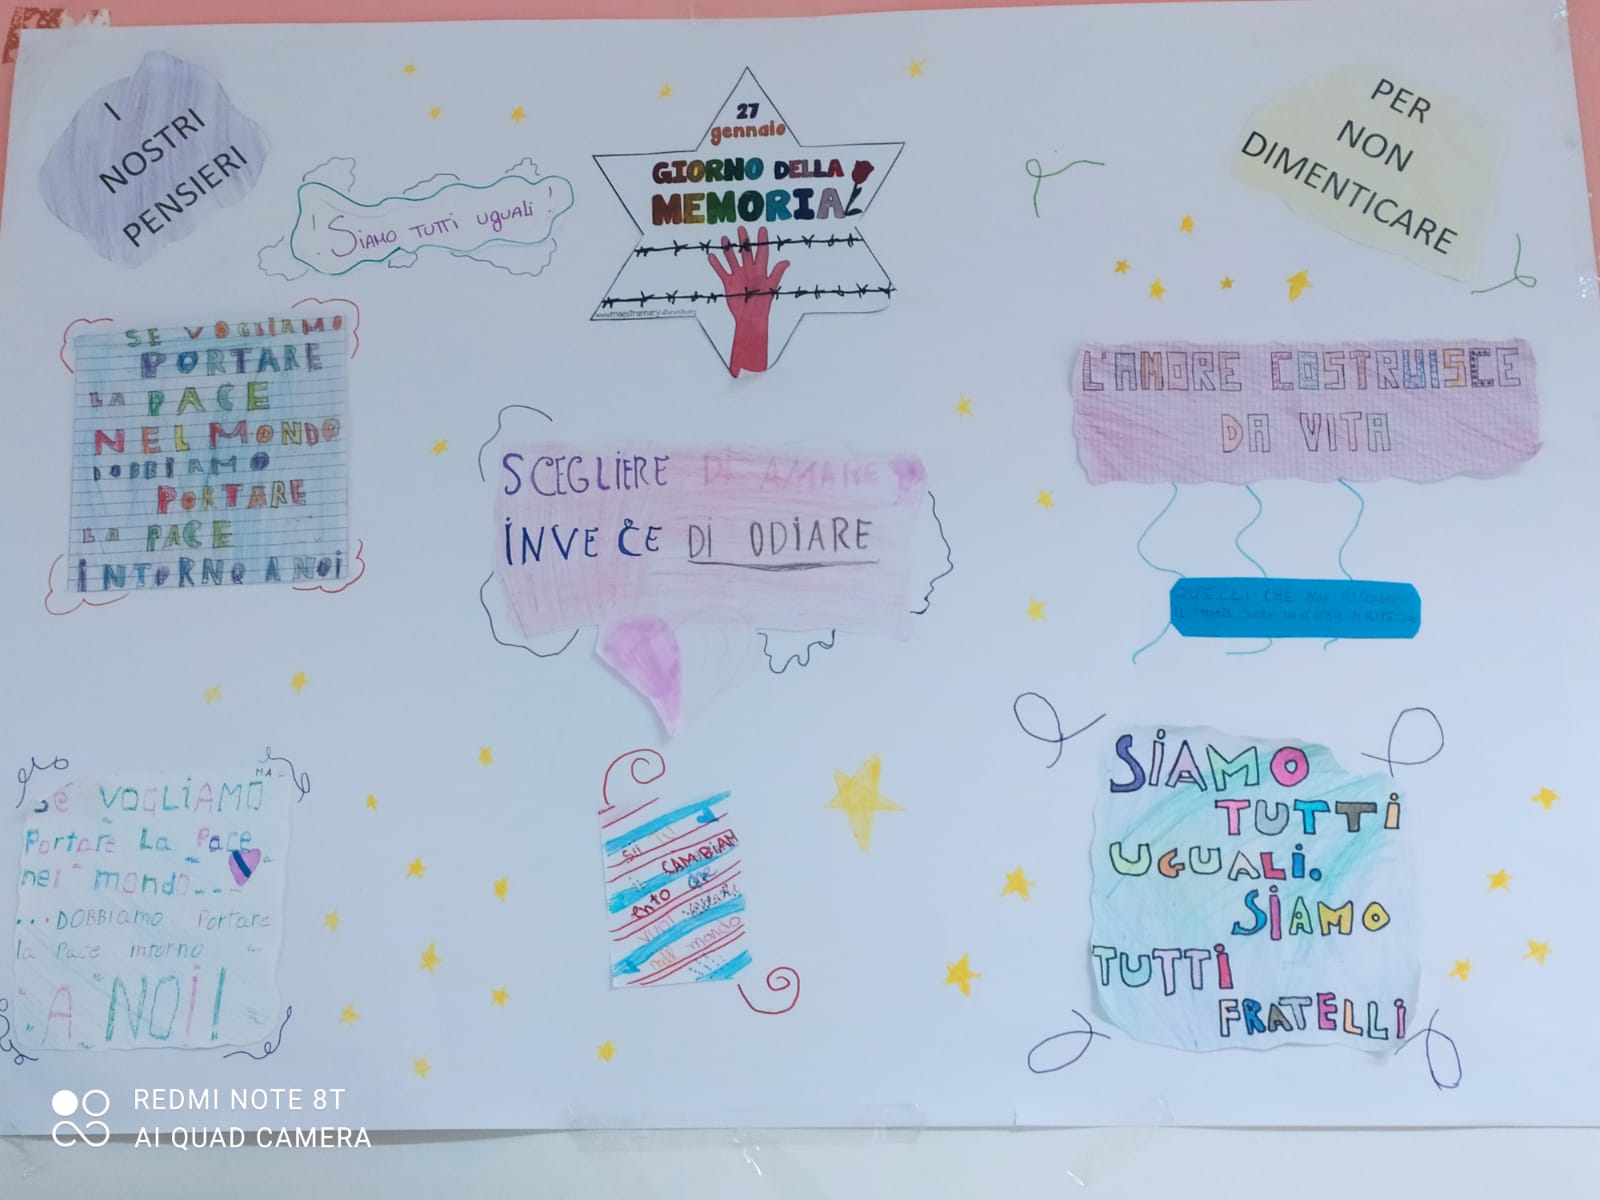 I
NOSTRI
PENSIERI
! SIAMO TUTTI UGUALI !
27
gennaio
GIORNO DELLA
MEMORIA
PER
NON
DIMENTICARE
SE VOGLIAMO
PORTARE
LA PACE
NEL MONDO
DOBBIAMO
PORTARE
LA PACE
INTORNO A NOI
SCEGLIERE DI AMARE
INVECE DI ODIARE
L'AMORE COSTRUISCE
DA VITA
QUELLI CHE NON RICORDANO
IL PASSATO SONO
SE VOGLIAMO
Portare La Pace
nel mondo...
...DOBBiamo Portare
la Pace intorno
A NOI!
Sii TU
il CAMBIAM
ento CHE
VUOI
nel mondo
SIAMO
TUTTI
UGUALI.
SIAMO
TUTTI
FRATELLI
REDMI NOTE 8T
AI QUAD CAMERA